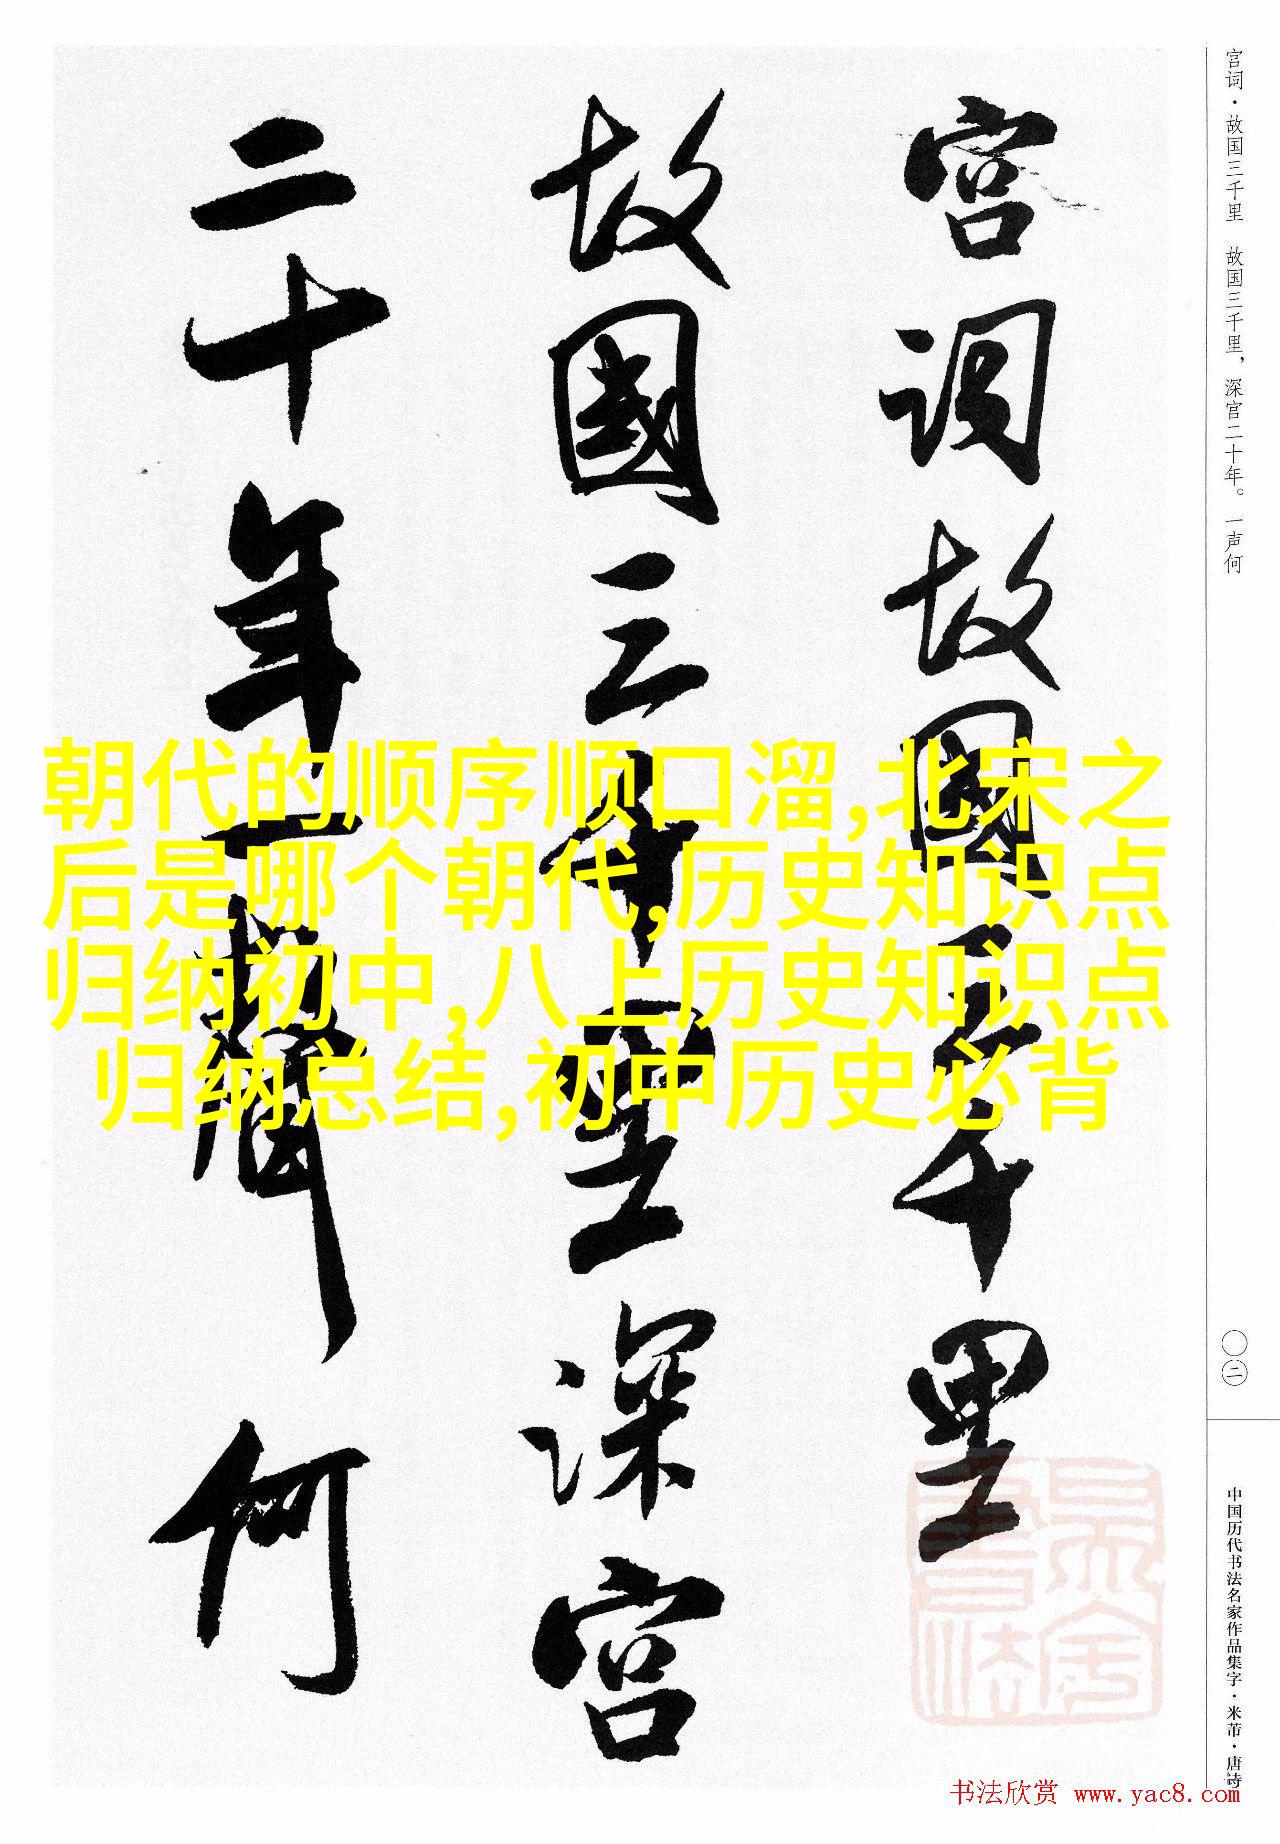 宫词故國三千里
故國三千里深宫
二十年一聲何
朝代的顺序顺口溜,北宋之
后是哪个朝代,历史知识点
归纳初中,八上历史知识点
归纳总结,初中历史必背
宫词·故国三千里 故国三千里，深宫二十年。一声何
〇二
中国历代书法名家作品集字·米芾·唐诗
书法欣赏 www.yac8.com